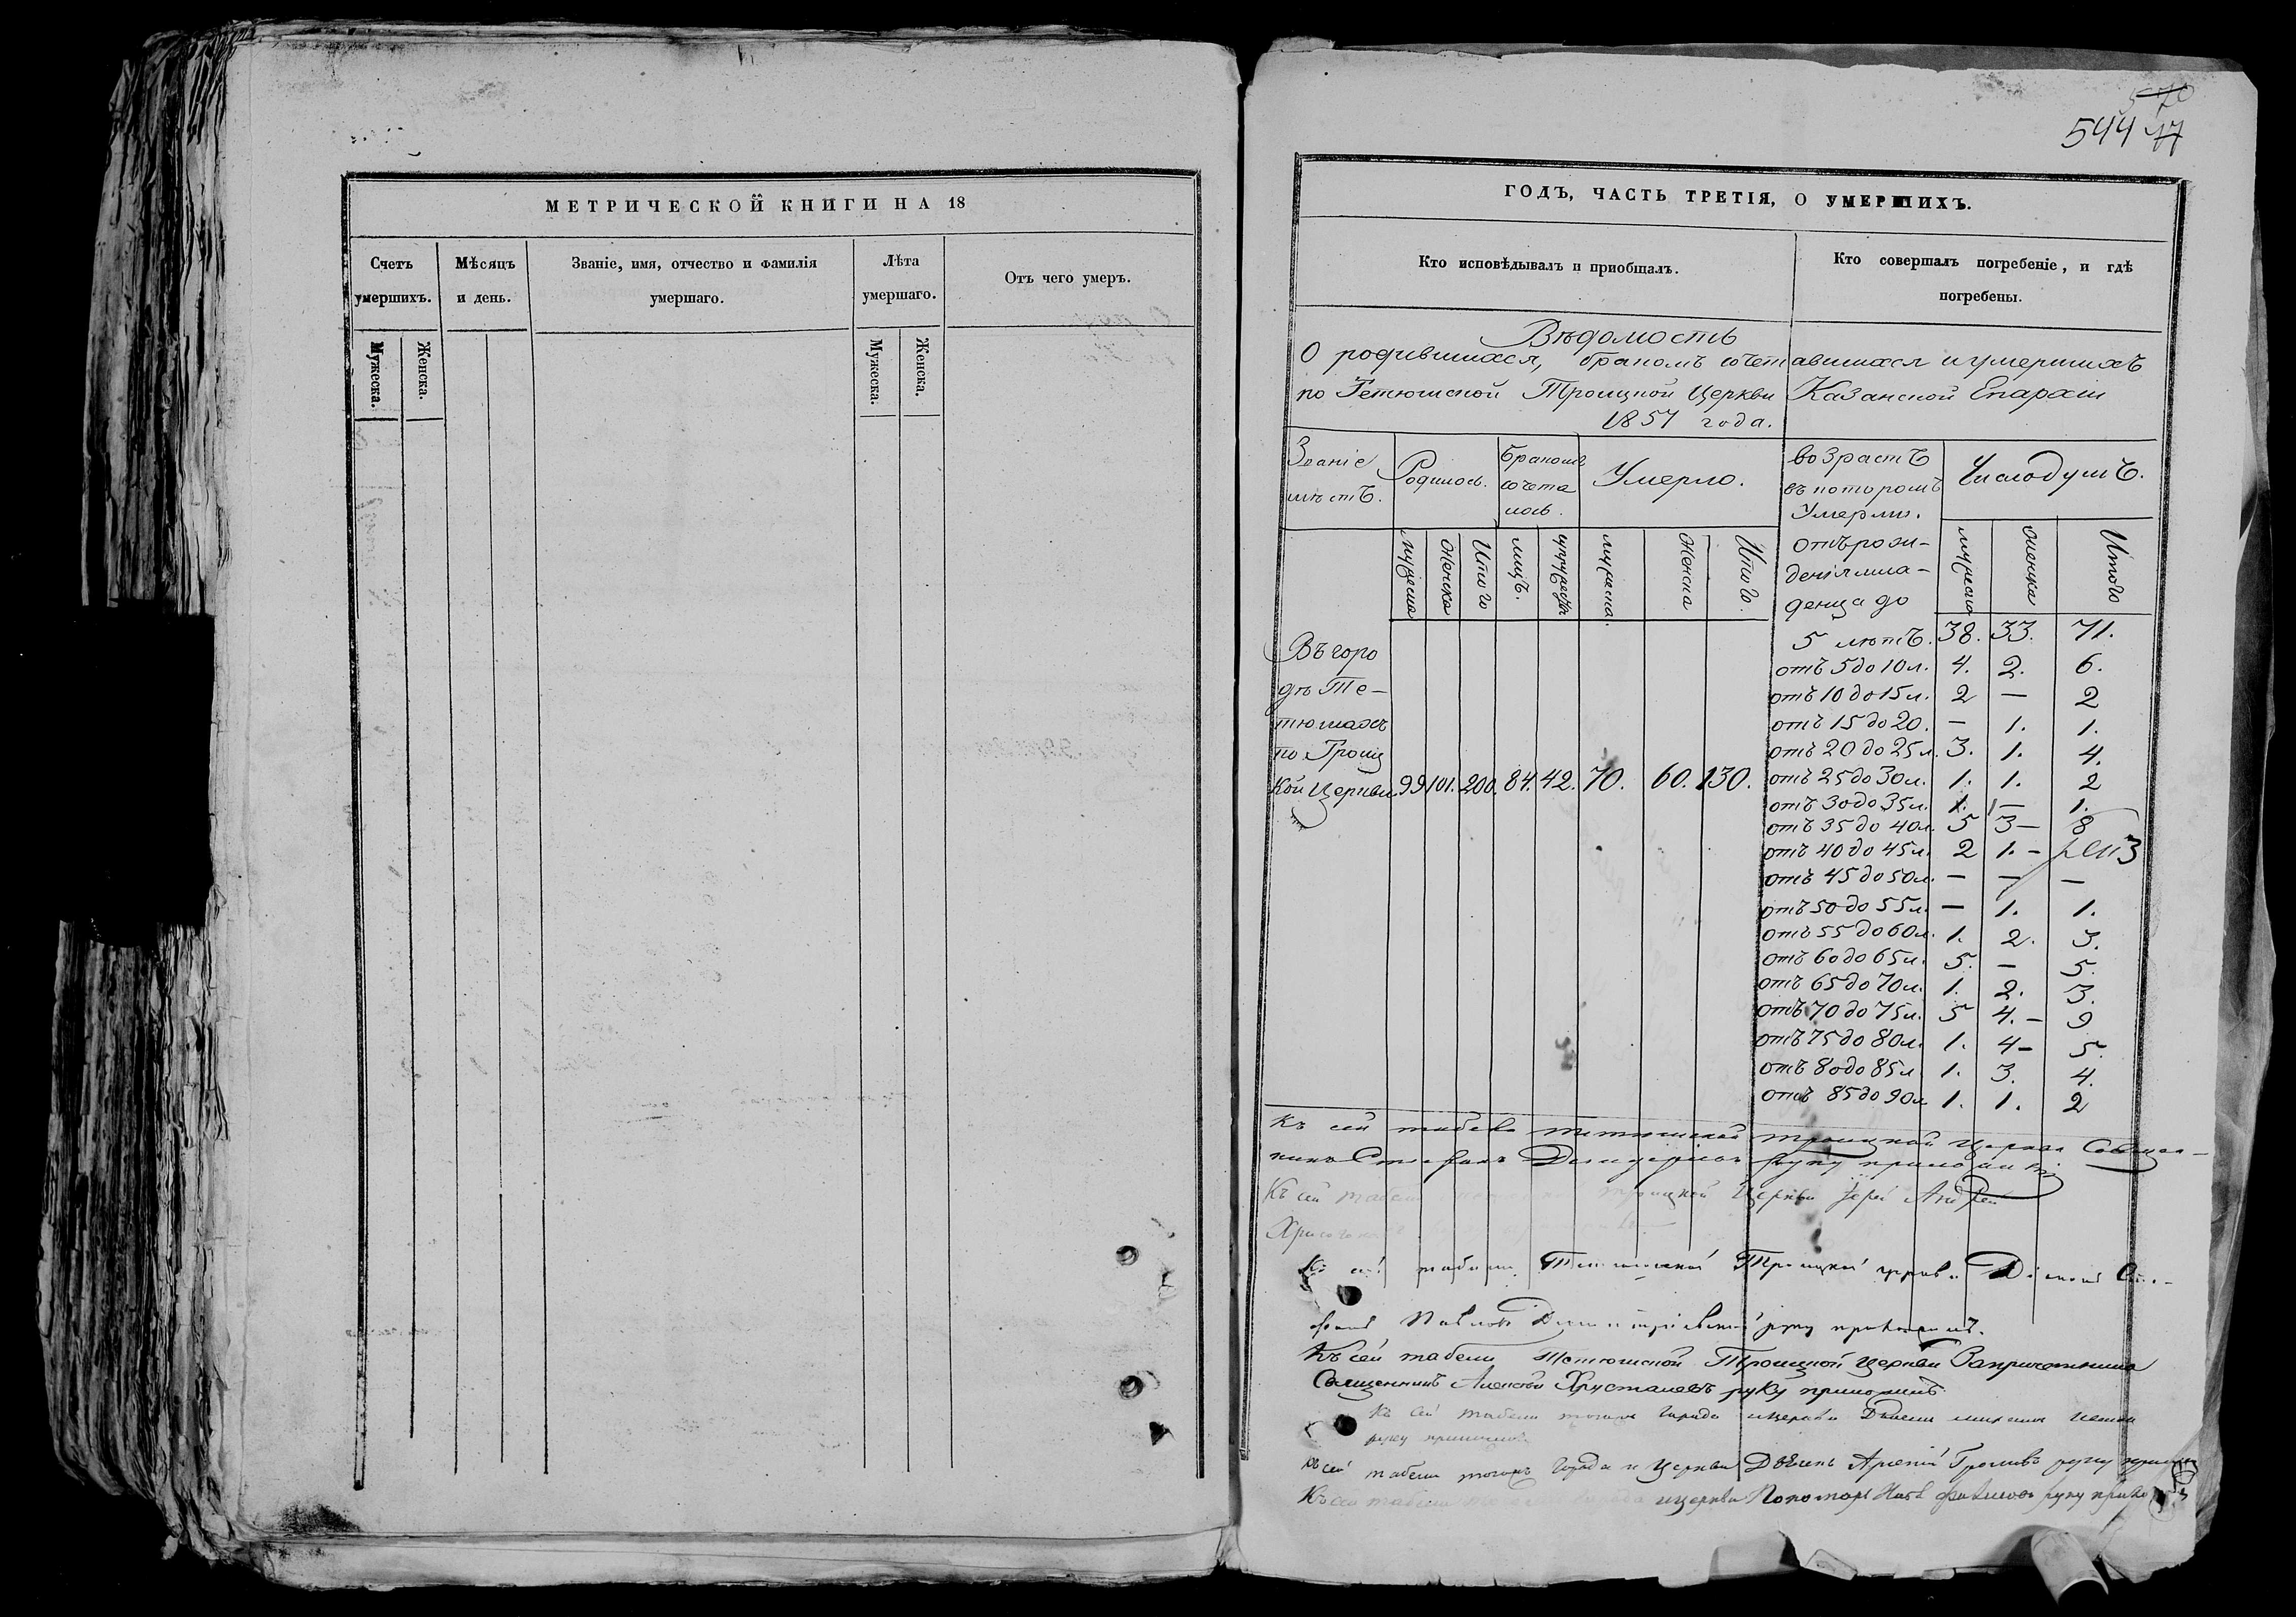 МЕТРИЧЕСКОЙ КНИГИ НА 18
Счетъ умершихъ.
Мѣсяцъ и день.
Званіе, имя, отчество и фамилія умершаго.
Лѣта умершаго.
Отъ чего умеръ.
Мужеска.
Женска.
Мужеска.
Женска.
570
544 17
ГОДЪ, ЧАСТЬ ТРЕТІЯ, О УМЕРШИХЪ.
Кто исповѣдывалъ и пріобщалъ.
Кто совершалъ погребеніе, и гдѣ погребены.
Вѣдомость
О родившихся, бракомъ сочетавшихся и умершихъ
по Тетюшской Троицкой Церкви Казанской Епархіи
1857 года.
Званіе мѣстъ.
Родилось.
Бракомъ сочета лось.
Умерло.
возрастъ въ которомъ Умерли.
Число душъ.
мужеска
женска
Итого
лицъ.
супружествъ
мужеска.
женска
Итого.
отъ рож-
денія мла-
денца до
мужеска
женска
Итого
5 лѣтъ. 38. 33. 71.
Въ горо
отъ 5 до 10 л. 4. 2. 6.
дѣ Те-
отъ 10 до 15 л. 2 — 2
тюшахъ
отъ 15 до 20. — 1. 1.
по Троиц
отъ 20 до 25 л. 3. 1. 4.
кой Церкви 99 101. 200. 84. 42. 70. 60. 130.
отъ 25 до 30 л. 1. 1. 2
отъ 30 до 35 л. 1. — 1.
отъ 35 до 40 л. 5 3 — 8
отъ 40 до 45 л. 2 1. — 3
отъ 45 до 50 л. — — —
отъ 50 до 55 л. — 1. 1.
отъ 55 до 60 л. 1. 2. 3.
отъ 60 до 65 л. 5. — 5.
отъ 65 до 70 л. 1. 2. 3.
отъ 70 до 75 л. 5 4. — 9
отъ 75 до 80 л. 1. 4 — 5.
отъ 80 до 85 л. 1. 3. 4.
отъ 85 до 90 л. 1. 1. 2
Къ сей табели тетюшской троицкой церкви Священ-
никъ Стефанъ руку приложилъ
Къ сей табели троицкой Церкви Іерей Андрей
Къ сей табели Тетюшской Троицкой церкви Діаконъ
Павловъ руку приложилъ.
Къ сей табели Тетюшской Троицкой церкви
Священникъ Алексѣй Хрусталевъ руку приложилъ
Къ сей табели тогожъ города и церкви Дьячекъ
руку приложилъ
Къ сей табели тогожъ города и церкви Дьячекъ Арсеній Громовъ руку приложилъ
Къ сей табели и церкви Пономарь руку приложилъ